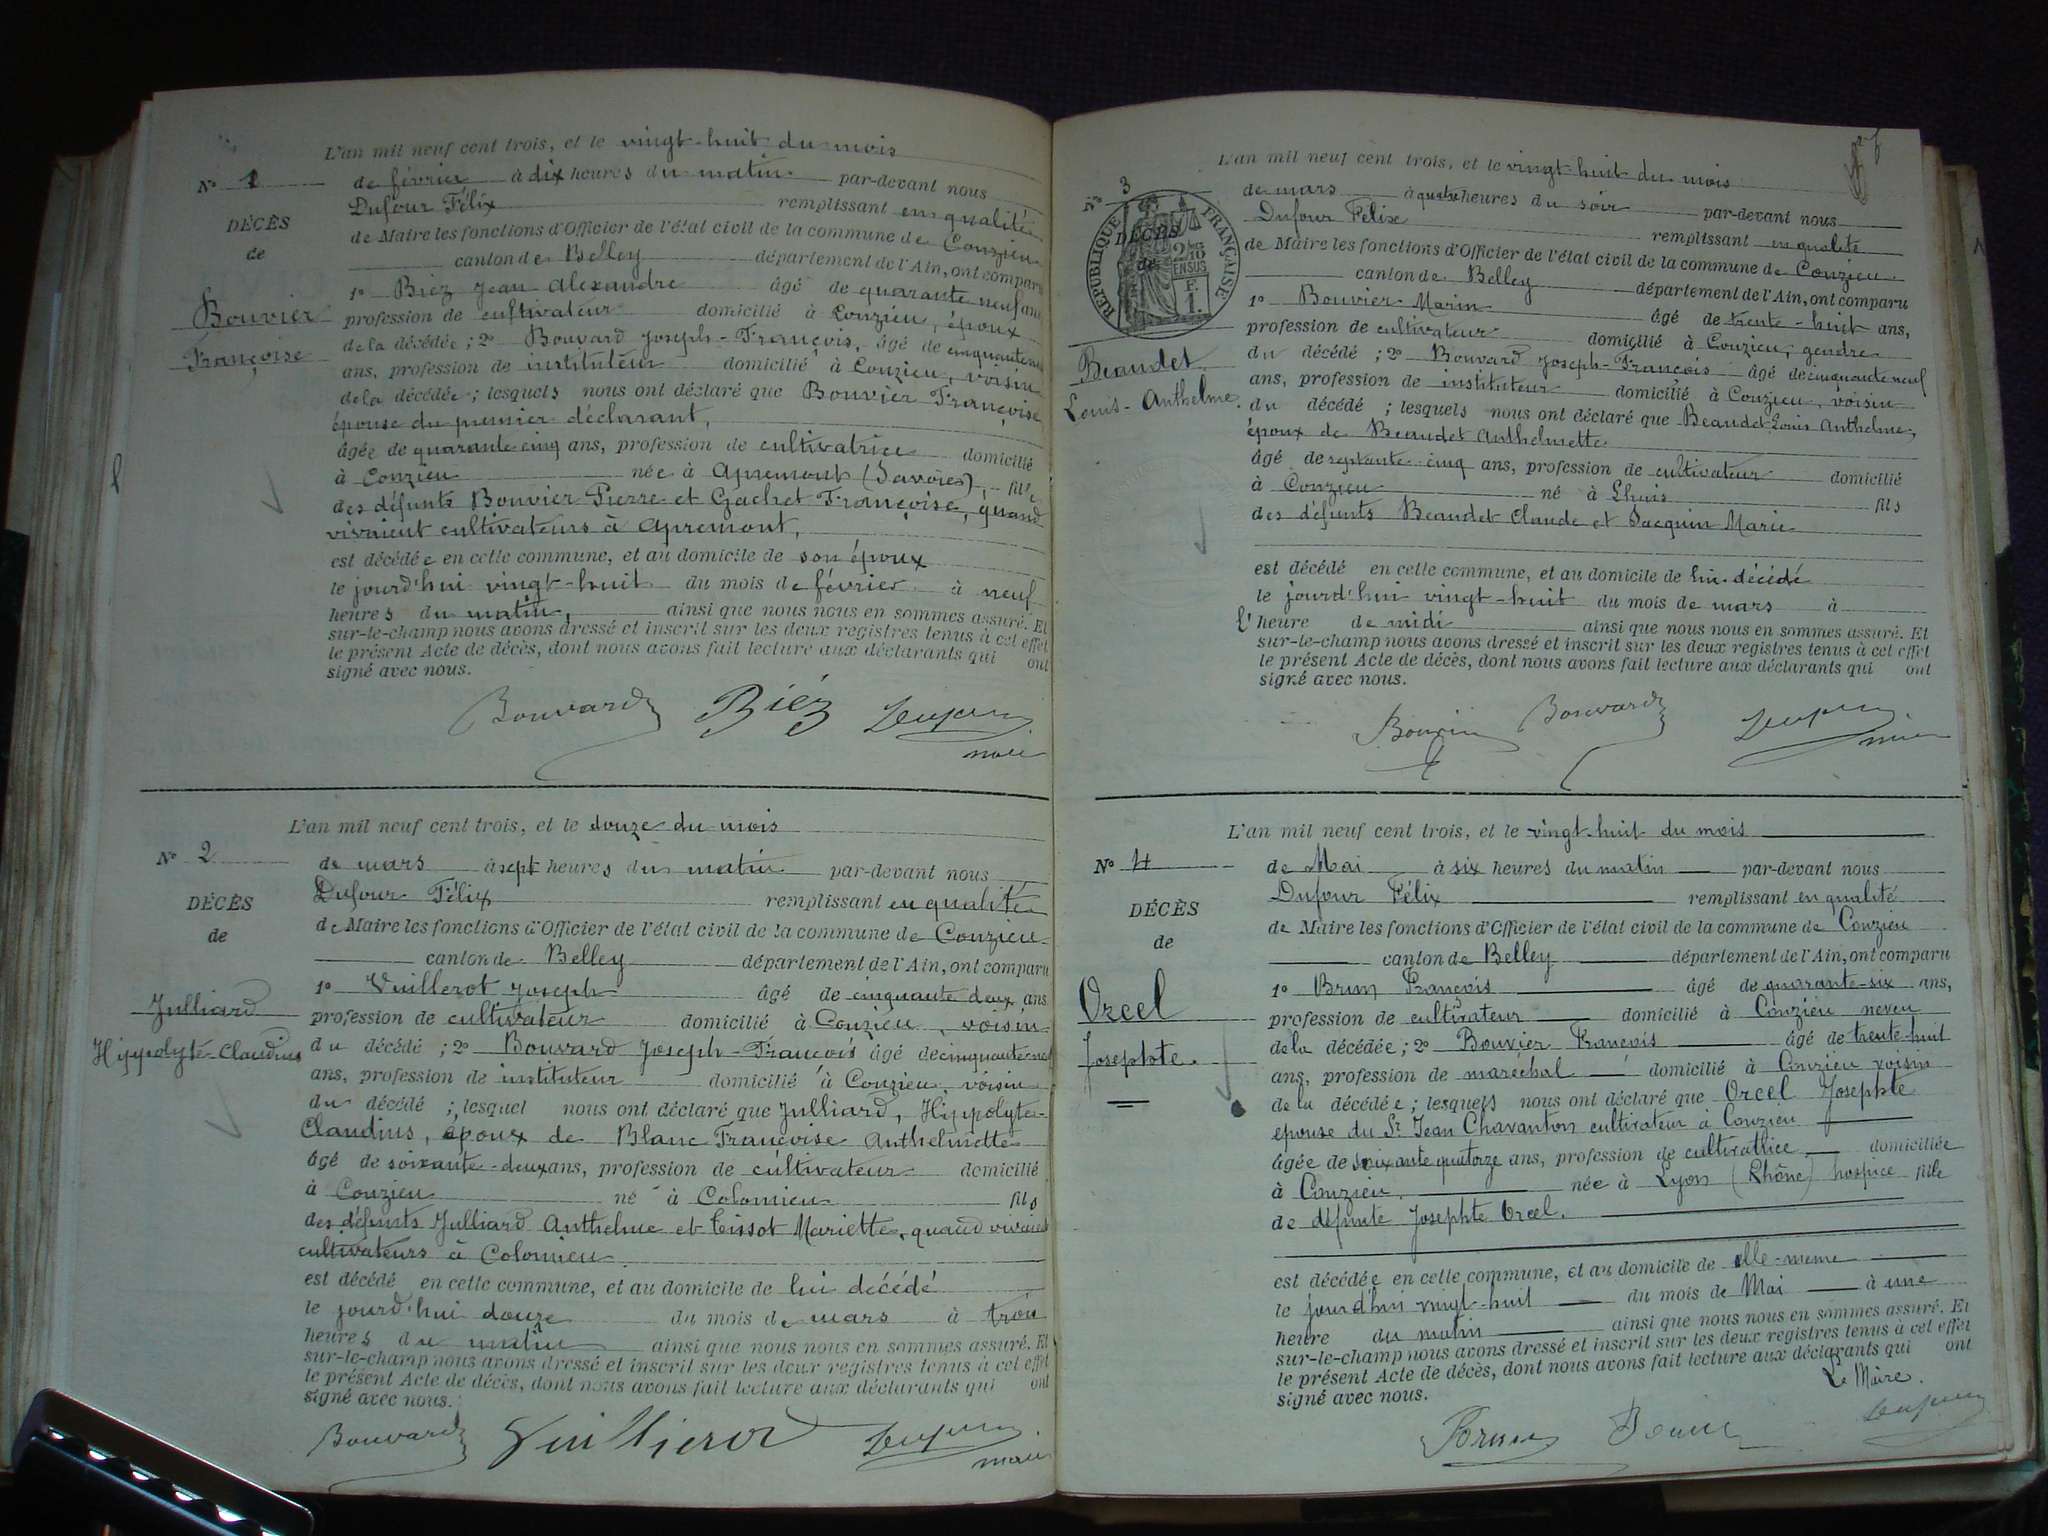 L'an mil neuf cent trois, et le vingt-huit du mois
N° 1 de février à dix heures du matin par-devant nous
Dufour Félix remplissant en qualité
DÉCÈS
de
Bouvier
Françoise
de Maire les fonctions d'Officier de l'état civil de la commune de Conzieu
canton de Belley département de l'Ain, ont comparu
1° Biez Jean Alexandre âgé de quarante neuf ans
profession de cultivateur domicilié à Conzieu, époux
de la décédée ; 2° Bouvard Joseph-François, âgé de cinquante neuf
ans, profession de instituteur domicilié à Conzieu, voisin
de la décédée ; lesquels nous ont déclaré que Bouvier Françoise
épouse du premier déclarant,
âgée de quarante cinq ans, profession de cultivatrice domicilié
à Conzieu née à Apremont (Savoie), fille
des défunts Bouvier Pierre et Gachet Françoise, quand
vivaient cultivateurs à Apremont,
est décédée en cette commune, et au domicile de son époux
le jourd'hui vingt-huit du mois de février à neuf
heures du matin, ainsi que nous nous en sommes assuré. Et
sur-le-champ nous avons dressé et inscrit sur les deux registres tenus à cet effet
le présent Acte de décès, dont nous avons fait lecture aux déclarants qui ont
signé avec nous.
Bouvard Biéz Dufour
maire
L'an mil neuf cent trois, et le douze du mois
N° 2 de mars à sept heures du matin par-devant nous
Dufour Félix remplissant en qualité
DÉCÈS
de
Julliard
Hippolyte-Claudius
de Maire les fonctions d'Officier de l'état civil de la commune de Conzieu
canton de Belley département de l'Ain, ont comparu
1° Vuillerot Joseph âgé de cinquante deux ans
profession de cultivateur domicilié à Conzieu, voisin
du décédé ; 2° Bouvard Joseph-François âgé de cinquante neuf
ans, profession de instituteur domicilié à Conzieu, voisin
du décédé ; lesquel nous ont déclaré que Julliard, Hippolyte-
Claudius, époux de Blanc Françoise Anthelmette
âgé de soixante-deux ans, profession de cultivateur domicilié
à Conzieu né à Colomieu fils
des défunts Julliard Anthelme et Tissot Mariette, quand vivaient
cultivateurs à Colomieu
est décédé en cette commune, et au domicile de lui décédé
le jourd'hui douze du mois de mars à trois
heures du matin ainsi que nous nous en sommes assuré. Et
sur-le-champ nous avons dressé et inscrit sur les deux registres tenus à cet effet
le présent Acte de décès, dont nous avons fait lecture aux déclarants qui ont
signé avec nous.
Bouvard Vuillerot Dufour
maire
L'an mil neuf cent trois, et le vingt-huit du mois
N° 3 de mars à quatre heures du soir par-devant nous
Dufour Félix remplissant en qualité
RÉPUBLIQUE FRANÇAISE
2/10 EN SUS
F. 1.
DÉCÈS
de
Beaudet
Louis-Anthelme.
de Maire les fonctions d'Officier de l'état civil de la commune de Conzieu
canton de Belley département de l'Ain, ont comparu
1° Bouvier Marin âgé de trente-huit ans,
profession de cultivateur domicilié à Conzieu, gendre
du décédé ; 2° Bouvard Joseph-François âgé de cinquante neuf
ans, profession de instituteur domicilié à Conzieu, voisin
du décédé ; lesquels nous ont déclaré que Beaudet Louis Anthelme,
époux de Beaudet Anthelmette
âgé de septante cinq ans, profession de cultivateur domicilié
à Conzieu né à Lhuis fils
des défunts Beaudet Claude et Jacquin Marie
est décédé en cette commune, et au domicile de lui décédé
le jourd'hui vingt-huit du mois de mars à
l'heure de midi ainsi que nous nous en sommes assuré. Et
sur-le-champ nous avons dressé et inscrit sur les deux registres tenus à cet effet
le présent Acte de décès, dont nous avons fait lecture aux déclarants qui ont
signé avec nous.
Bouvier Bouvard Dufour
maire
L'an mil neuf cent trois, et le vingt-huit du mois
N° 4 de Mai à six heures du matin par-devant nous
Dufour Félix remplissant en qualité
DÉCÈS
de
Orcel
Josephte.
de Maire les fonctions d'Officier de l'état civil de la commune de Conzieu
canton de Belley département de l'Ain, ont comparu
1° Brun François âgé de quarante-six ans,
profession de cultivateur domicilié à Conzieu neveu
de la décédée ; 2° Bouvier François âgé de trente-huit
ans, profession de maréchal domicilié à Conzieu voisin
de la décédée ; lesquels nous ont déclaré que Orcel Josephte
epouse du Sr Jean Chavanton cultivateur à Conzieu
âgée de soixante quatorze ans, profession de cultivatrice domiciliée
à Conzieu, née à Lyon (Rhône) hospice fille
de défunte Josephte Orcel.
est décédée en cette commune, et au domicile de elle-meme
le jourd'hui vingt-huit du mois de Mai à une
heure du matin ainsi que nous nous en sommes assuré. Et
sur-le-champ nous avons dressé et inscrit sur les deux registres tenus à cet effet
le présent Acte de décès, dont nous avons fait lecture aux déclarants qui ont
signé avec nous.
Le Maire.
Brun Bouvier Dufour